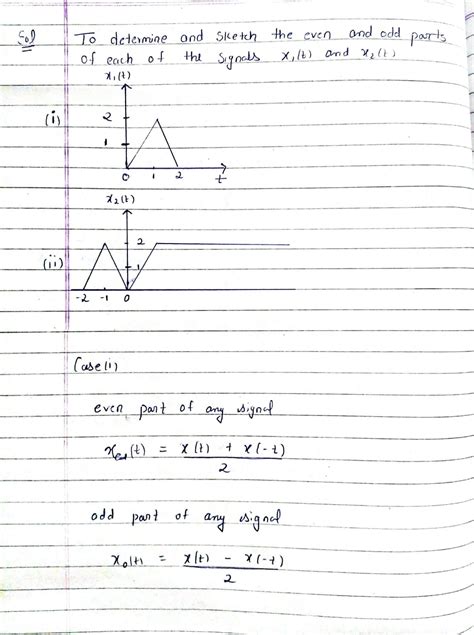 Sol
To determine and sketch the even and odd parts
of each of the signals x₁(t) and x₂(t)
x₁(t)
(i)
2
1
0 1 2 t
x₂(t)
(ii)
2
1
-2 -1 0
Case(i)
even part of any signal
xₑ(t) = x(t) + x(-t)
2
odd part of any signal
x₀(t) = x(t) - x(-t)
2